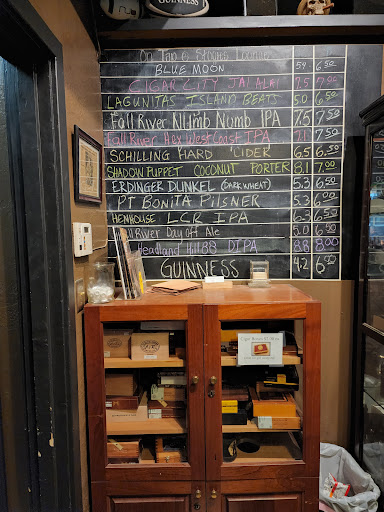 GUINNESS
On Tap & Strong
BLUE MOON 5.4 6.50
CIGAR CITY JAI ALAI 7.5 7.00
LAGUNITAS ISLAND BEATS 5.0 6.50
Fall River Numb Numb IPA 7.5 7.50
Fall River Hex West Coast IPA 7.1 7.50
SCHILLING HARD CIDER 6.5 6.50
SHADOW PUPPET COCONUT PORTER 8.1 7.00
ERDINGER DUNKEL (DARK WHEAT) 5.3 6.50
PT BONITA PILSNER 5.3 6.00
HENHOUSE LCR IPA 6.3 6.50
Fall River Day off Ale 5.0 6.50
Headland Hill 88 DIPA 8.8 8.00
GUINNESS 4.2 6.00